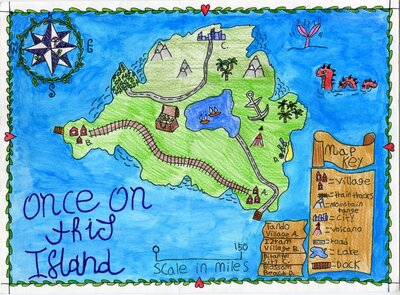 N
E
S
C.
B.
A.
Once on
this
Island
0
150
Scale in miles
Map
Key
= Village
= train tracks
= Mountain
range
= City
= volcano
= road
= Lake
= Dock
Village A.
Village B.
City C.
Beach D.